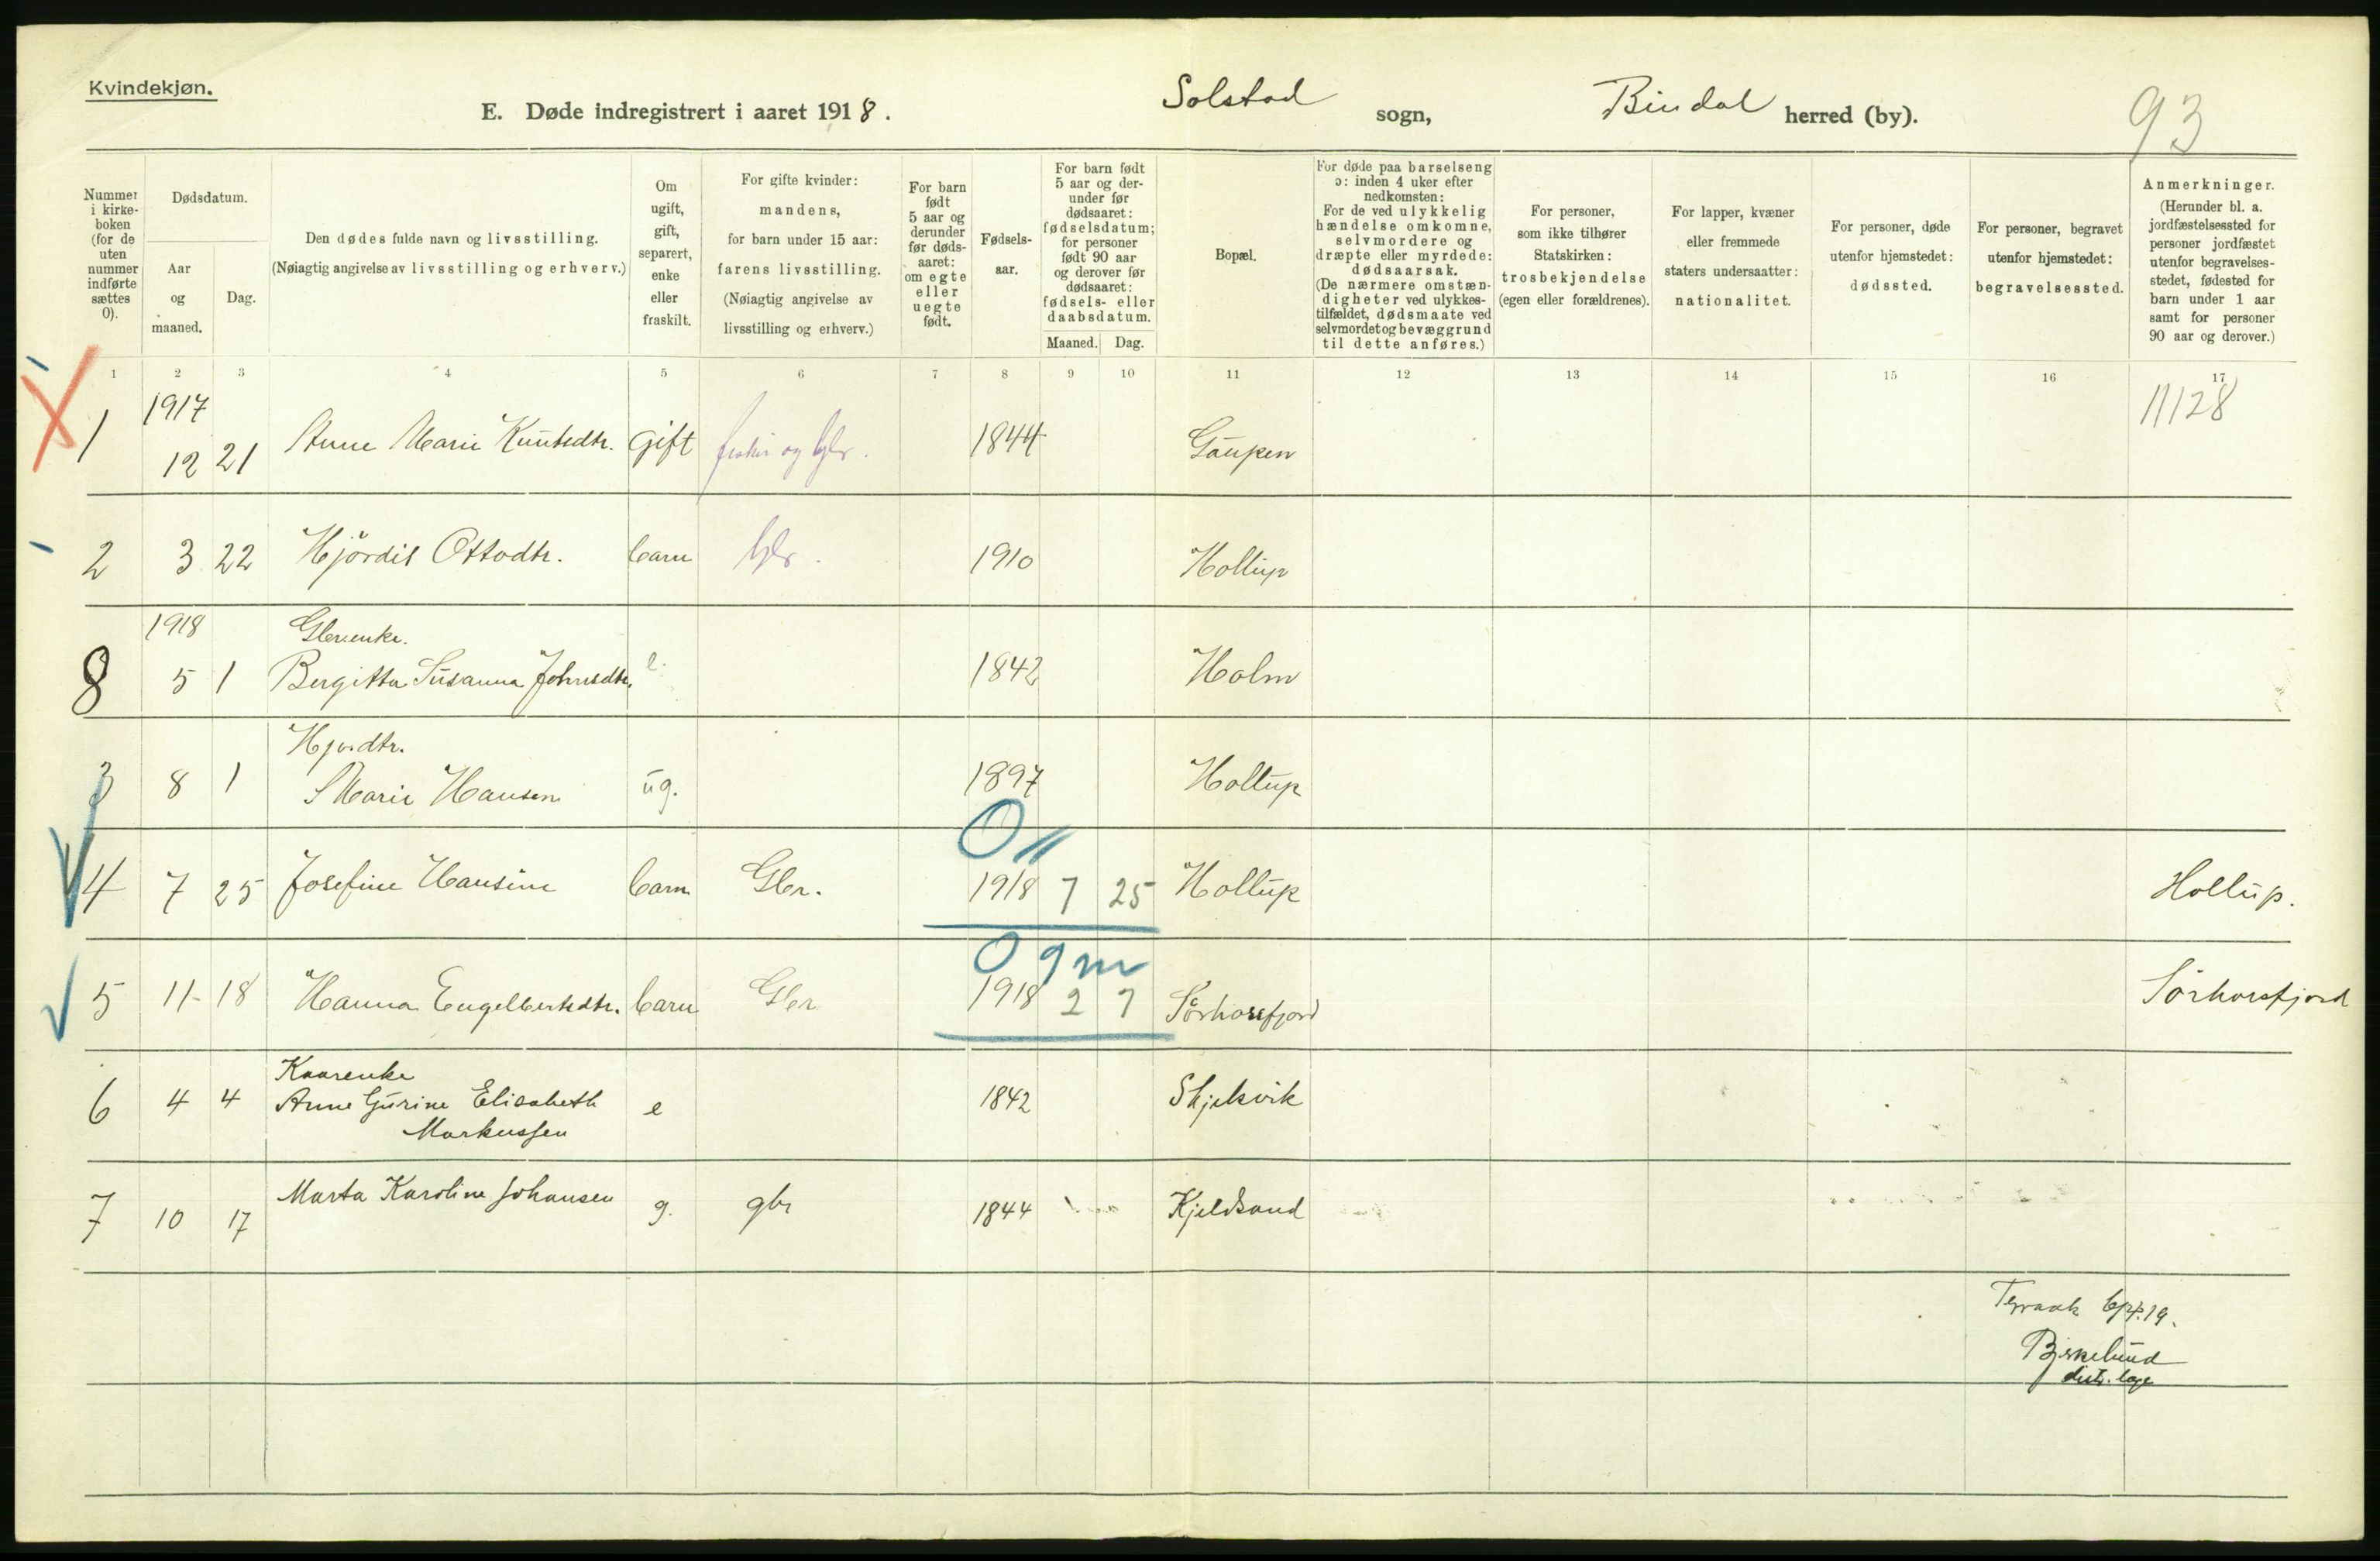 Kvindekjøn.
E. Døde indregistrert i aaret 1918. Solstad sogn, Bindal herred (by). 93
Nummer i kirke-boken (for de uten nummer indførte sættes 0).
Dødsdatum.
Aar og maaned.
Dag.
Den dødes fulde navn og livsstilling.
(Nøiagtig angivelse av livsstilling og erhverv.)
Om ugift, gift, separert, enke eller fraskilt.
For gifte kvinder: mandens, for barn under 15 aar: farens livsstilling. (Nøiagtig angivelse av livsstilling og erhverv.)
For barn født 5 aar og derunder før døds-aaret: om egte eller uegte født.
Fødsels-aar.
For barn født 5 aar og der-under før dødsaaret: fødselsdatum; for personer født 90 aar og derover før dødsaaret: fødsels- eller daabsdatum.
Maaned. Dag.
Bopæl.
For døde paa barselseng ɔ: inden 4 uker efter nedkomsten: For de ved ulykkelig hændelse omkomne, selvmordere og dræpte eller myrdede: dødsaarsak. (De nærmere omstæn-digheter ved ulykkes-tilfældet, dødsmaate ved selvmordet og bevæggrund til dette anføres.)
For personer, som ikke tilhører Statskirken: trosbekjendelse (egen eller forældrenes).
For lapper, kvæner eller fremmede staters undersaatter: nationalitet.
For personer, døde utenfor hjemstedet: dødssted.
For personer, begravet utenfor hjemstedet: begravelsessted.
Anmerkninger. (Herunder bl. a. jordfæstelsessted for personer jordfæstet utenfor begravelses-stedet, fødested for barn under 1 aar samt for personer 90 aar og derover.)
1 2 3 4 5 6 7 8 9 10 11 12 13 14 15 16 17
1917 11128
1 12 21 Anne Marie Knutsdtr. gift 1844 Gaupen
2 3 22 Hjördis Ottodtr. barn 1910 Hollup
1918 Gbr.enke.
8 5 1 Bergitta Susanna Johnsdtr. e. 1842 Holm
3 8 1 Marie Hansen ug. 1897 Hollup
0
4 7 25 Josefine Hansine barn Gbr. 1918 7 25 Hollup Hollup.
0 9 m
5 11 18 Hanna Engelbertsdtr. barn Gbr 1918 2 7 Sörhorsfjord Sörhorsfjord
Kaarenke
6 4 4 Anne Gurine Elisabeth e 1842 Skjelsvik
Markussen
7 10 17 Marta Karoline Johansen g. gbr 1844 Kjeldsand
Terraak
Bjerkelund
distr.læge